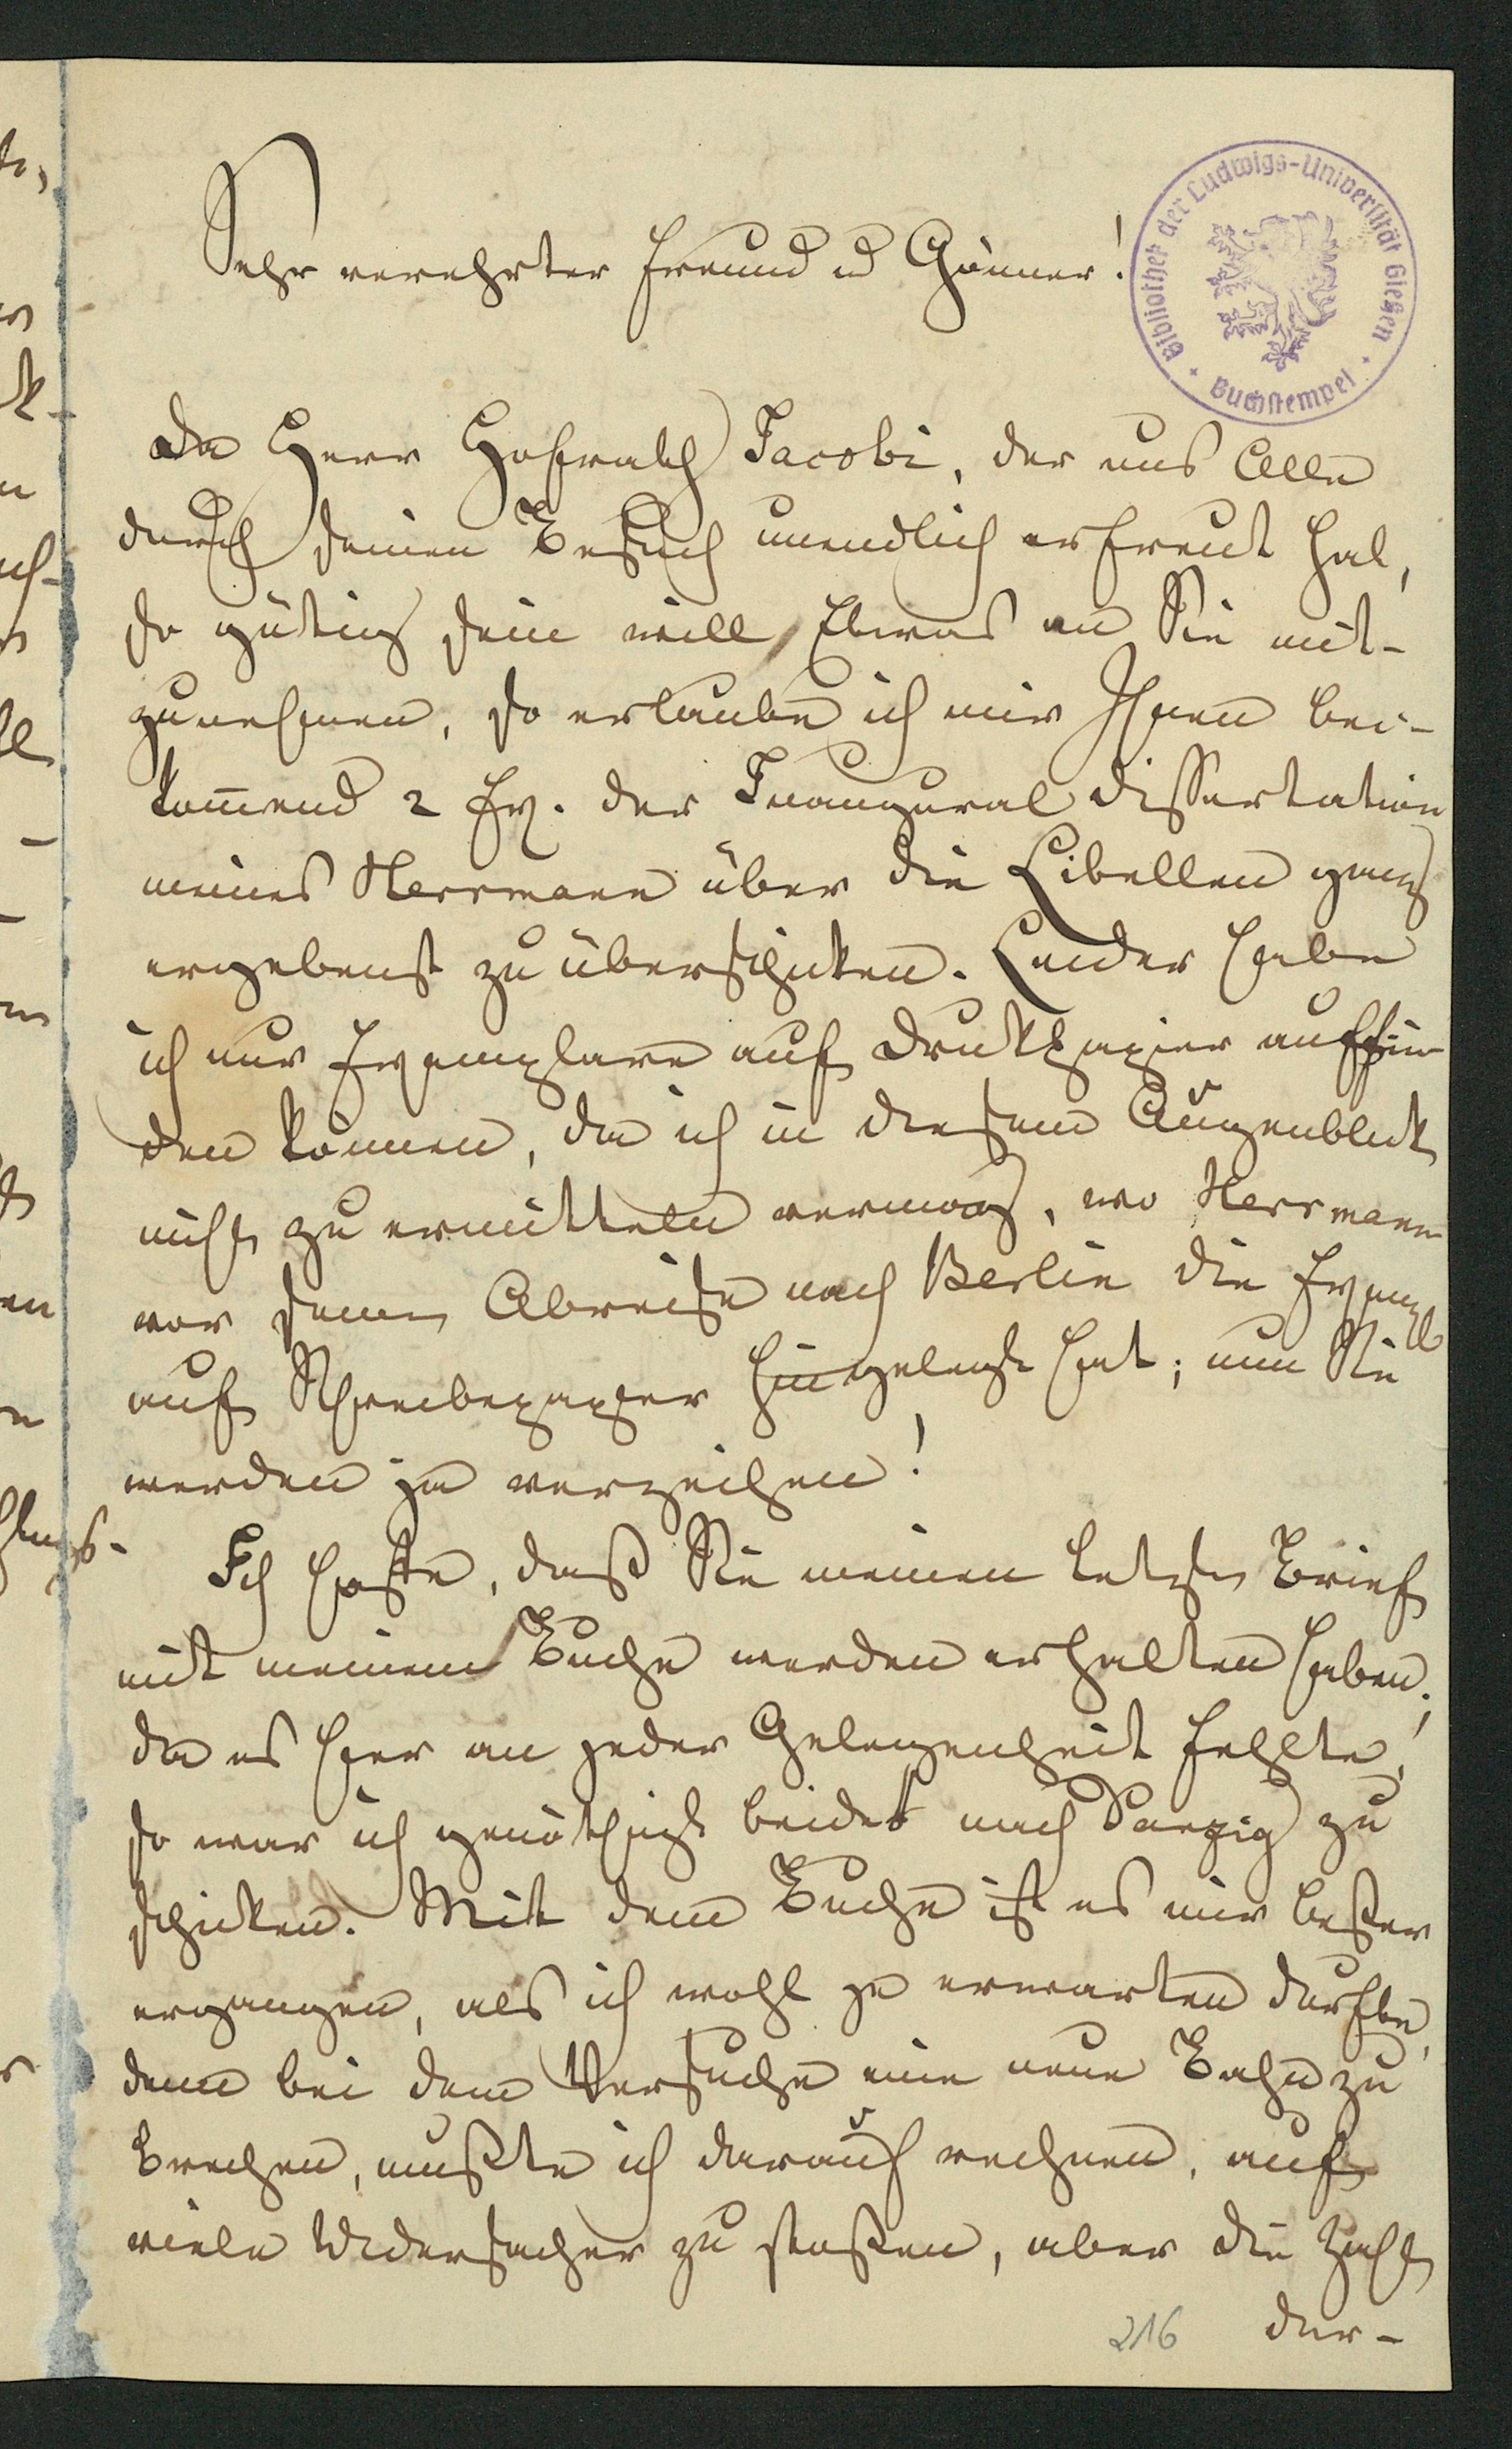 Sehr verehrter Freund u Gönner!
Bibliothek der Ludwigs-Universität Gießen
Buchstempel
Da Herr Hofrath Jacobi, der uns Alle
durch seinen Besuch unendlich erfreut hat,
so gütig sein will, Etwas an Sie mit-
zunehmen, so erlaube ich mir Ihnen bei-
kom̅end 2 Ex. der Inaugural Dissertation
meines Herrmann über die Libellen ganz
ergebenst zu überschicken. Leider habe
ich nur Exemplare auf Druckpapier auffin
den können, da ich in diesem Augenblick
nicht zu ermitteln vermag, wo Herrmann
vor seiner Abreise nach Berlin die Exempl
auf Schreibepapier hingelegt hat; nun Sie
werden ja verzeihen!
Ich hoffe, daß Sie meinen letzten Brief
mit meinem Buche werden erhalten haben;
da es hier an jeder Gelegenheit fehlte,
so war ich genöthigt beides nach Danzig zu
schicken. Mit dem Buche ist es mir beßer
ergangen, als ich wohl zu erwarten durfte,
denn bei dem Versuche eine neue Bahn zu
brechen, mußte ich darauf rechnen, auf
viele Widersacher zu stoßen, aber die Zahl
216 der-